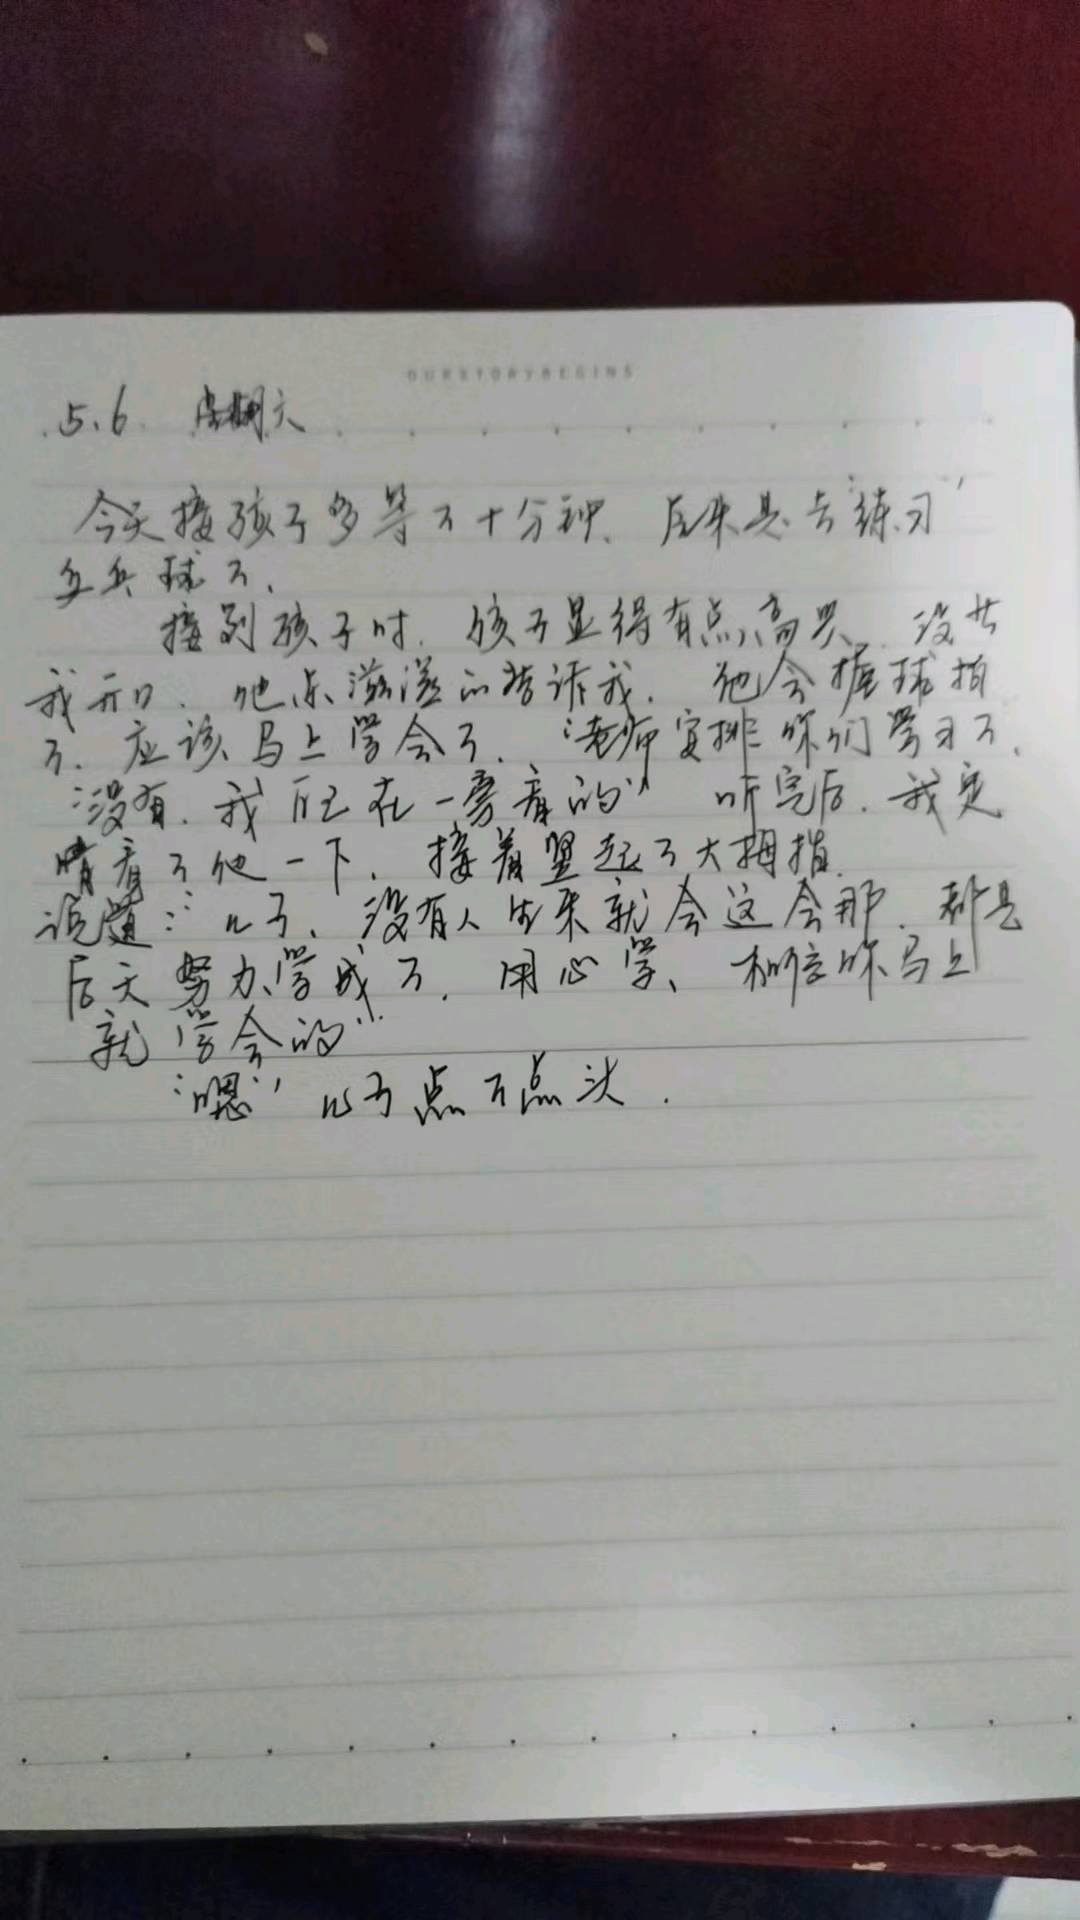 OURSTORYBEGINS
5.6 星期六
今天接孩子多等了十分钟、后来是去“练习”
乒乓球了.
接到孩子时.孩子显得有点高兴.没廿
我开口.他乐滋滋的告诉我.他会握球拍
了.应该马上学会了.“老师安排你们学习了.
“没有.我自己在一旁看的”听完后.我定
睛看了他一下.接着竖起了大拇指.
说道:“儿子、没有人生来就会这会那.都是
后天努力学成了.用心学、相信你马上
就学会的”
“嗯”儿子点了点头.